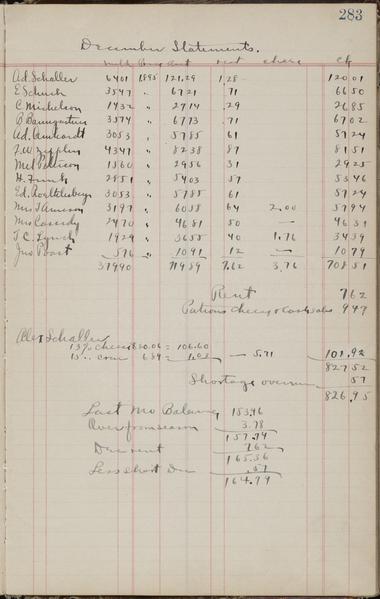 283
December Statements.
milk Amt rent cheese Ck
Ad. Schaller 6401 1895 121.29 1 28 — 120 01
E Schuch 3547 " 67 21 71 66 50
C Michelson 1432 " 27 14 29 26 85
3574 " 67 73 71 67 02
Ad. 3053 " 57 85 61 57 24
4347 " 82 38 87 81 51
1560 " 29 56 31 29 25
2851 " 54 03 57 53 46
Ed. 3053 " 57 85 61 57 24
Mrs 3197 " 60 58 64 2.00 57 94
Mrs Cassidy 2470 " 46 81 50 — 46 31
T C. Lynch 1929 " 36 55 40 1.76 34 39
Jno Post 576 " 10 91 12 — 10 79
37990 719 89 7.62 3.76 708 51
Rent 7 62
Patrons cheese & Cash sales 9 47
Alex Schaller
13% cheese 820.06 = 106.60
15 684 = — 5.71 101.92
827 52
Shortage overrun 57
826.95
Last Mo Balance 153.96
Over from season 3.78
157.74
Dec rent 7.62
165.36
Less short Dec .57
164.79